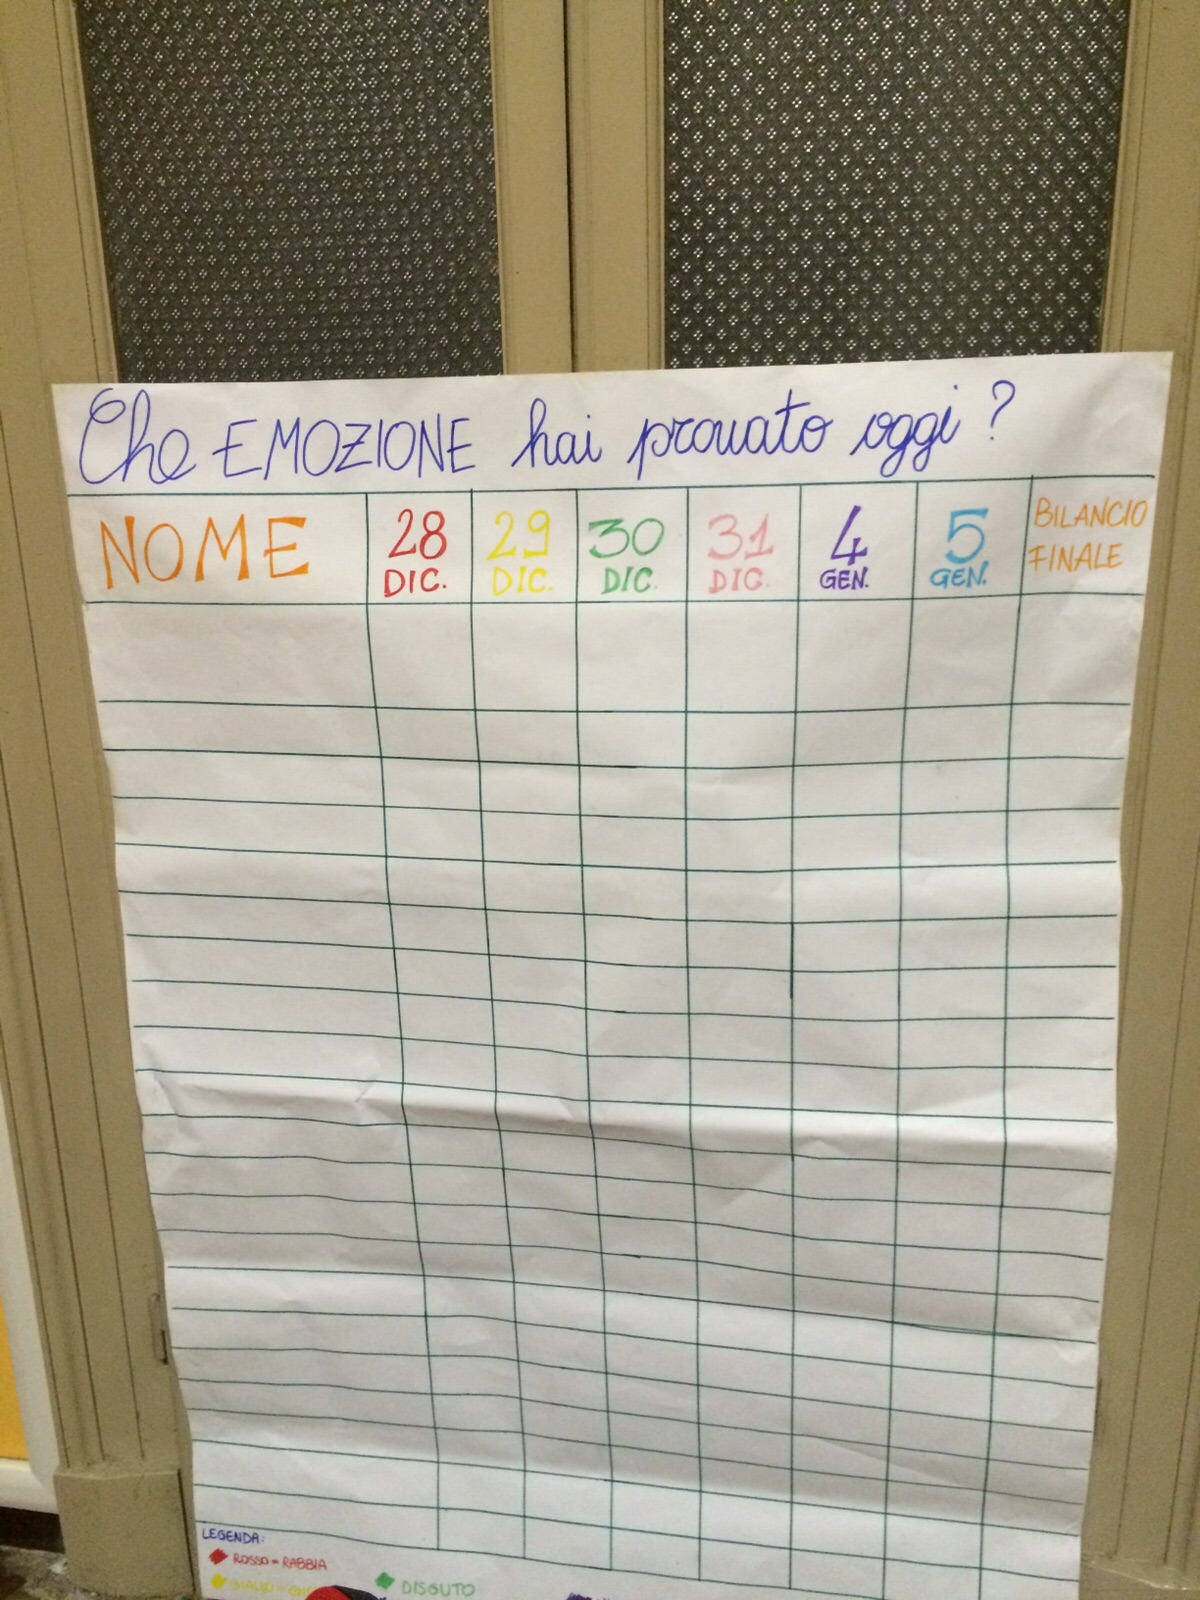 Che EMOZIONE hai provato oggi?
NOME
28 DIC.
29 DIC.
30 DIC.
31 DIC.
4 GEN.
5 GEN.
BILANCIO
FINALE
LEGENDA:
ROSSO = RABBIA
GIALLO =
DISGUTO